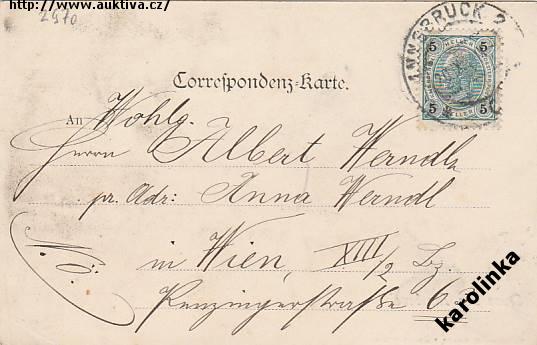 http://www.auktiva.cz/
2970
INNSBRUCK 2
5 HELLER 5
5 5
Correspondenz-Karte.
An Wohlg.
Herrn Albert Werndl
pr. Adr: Anna Werndl
in Wien, XIII/2 Bz.
Penzingerstraße 6
karolinka